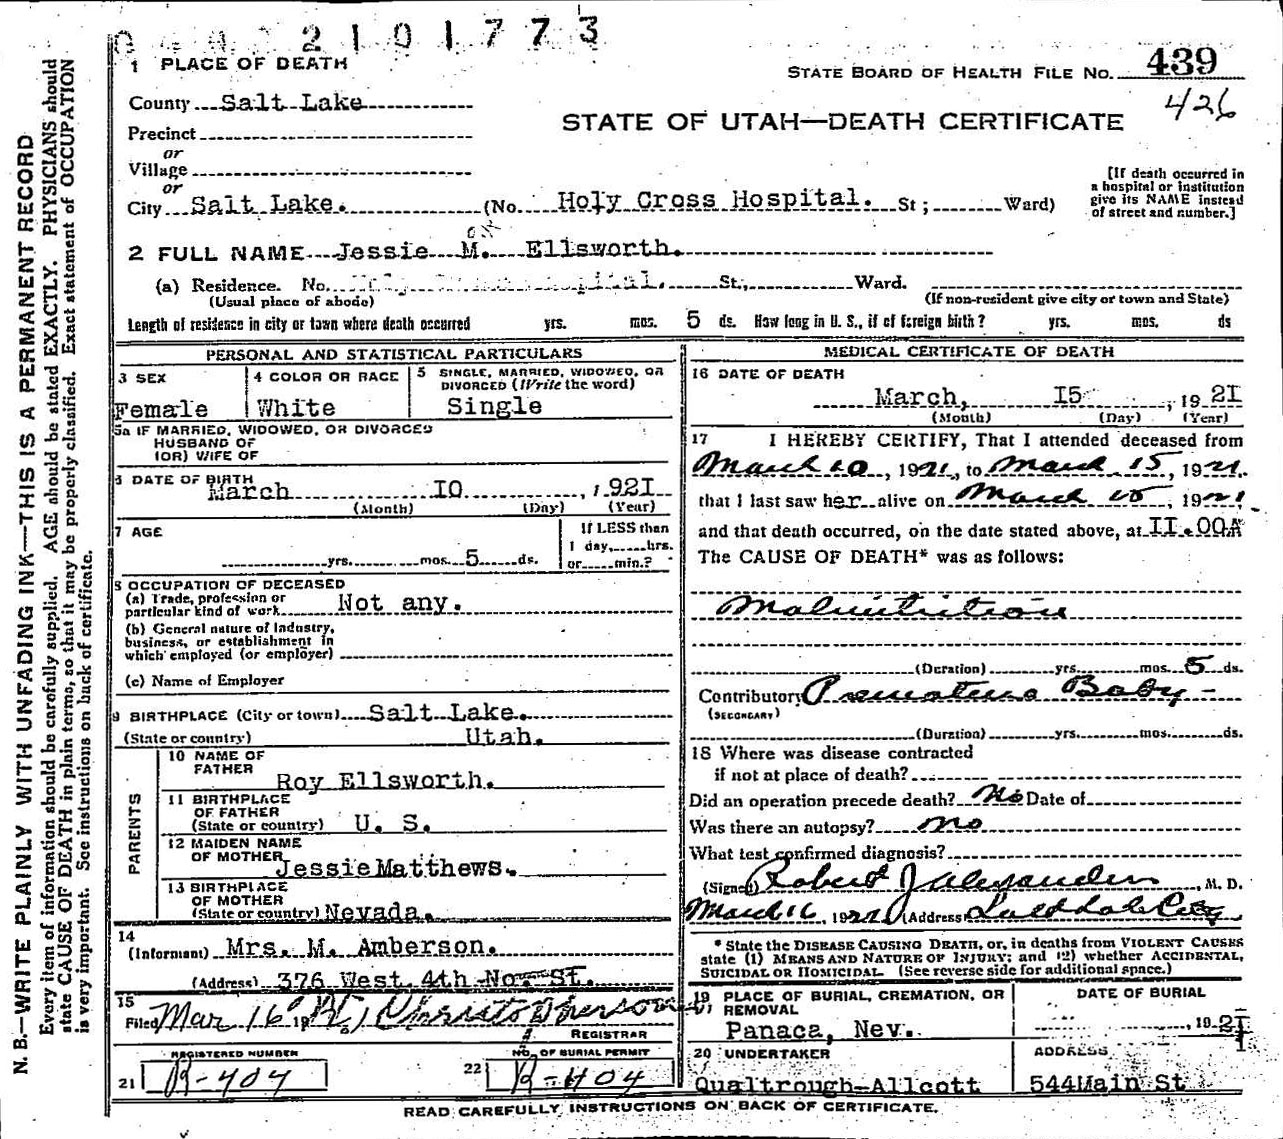 2101773
1 PLACE OF DEATH
STATE BOARD OF HEALTH FILE NO. 439
426
County Salt Lake
STATE OF UTAH—DEATH CERTIFICATE
Precinct
or
Village
or
City Salt Lake. (No. Holy Cross Hospital. St; Ward)
[If death occurred in
a hospital or institution
give its NAME instead
of street and number.]
2 FULL NAME Jessie M. Ellsworth.
(a) Residence. No. Holy Cross Hospital. St., Ward.
(Usual place of abode)
(If non-resident give city or town and State)
Length of residence in city or town where death occurred yrs. mos. 5 ds. How long in U. S., if of foreign birth? yrs. mos. ds
PERSONAL AND STATISTICAL PARTICULARS
3 SEX
Female
4 COLOR OR RACE
White
5 SINGLE, MARRIED, WIDOWED, OR
DIVORCED (Write the word)
Single
5a IF MARRIED, WIDOWED, OR DIVORCED
HUSBAND OF
(OR) WIFE OF
6 DATE OF BIRTH
March I0, 192I
(Month) (Day) (Year)
7 AGE
yrs. mos. 5 ds.
If LESS than
1 day, hrs.
or min.?
8 OCCUPATION OF DECEASED
(a) Trade, profession or
particular kind of work Not any.
(b) General nature of Industry,
business, or establishment in
which employed (or employer)
(c) Name of Employer
9 BIRTHPLACE (City or town) Salt Lake.
(State or country) Utah.
PARENTS
10 NAME OF
FATHER
Roy Ellsworth.
11 BIRTHPLACE
OF FATHER
(State or country) U. S.
12 MAIDEN NAME
OF MOTHER Jessie Matthews.
13 BIRTHPLACE
OF MOTHER
(State or country) Nevada.
14
(Informant) Mrs. M. Amberson.
(Address) 376 West 4th No. St.
15
Filed Mar 16 19 Christopherson
REGISTRAR
REGISTERED NUMBER
21 R-404
NO. OF BURIAL PERMIT
22 R-404
MEDICAL CERTIFICATE OF DEATH
16 DATE OF DEATH
March, I5, 192I
(Month) (Day) (Year)
17 I HEREBY CERTIFY, That I attended deceased from
March 10, 1921, to March 15, 1921
that I last saw her alive on March 15, 1921
and that death occurred, on the date stated above, at II.00A
The CAUSE OF DEATH* was as follows:
Malnutrition
(Duration) yrs. mos. 5 ds.
Contributory Premature Baby -
(SECONDARY)
(Duration) yrs. mos. ds.
18 Where was disease contracted
if not at place of death?
Did an operation precede death? No Date of
Was there an autopsy? no
What test confirmed diagnosis?
(Signed) Robert J Alexander, M. D.
March 16, 1921 (Address) Salt Lake City
* State the DISEASE CAUSING DEATH, or, in deaths from VIOLENT CAUSES
state (1) MEANS AND NATURE OF INJURY; and (2) whether ACCIDENTAL,
SUICIDAL OR HOMICIDAL. (See reverse side for additional space.)
19 PLACE OF BURIAL, CREMATION, OR
REMOVAL
Panaca, Nev.
DATE OF BURIAL
, 192I
20 UNDERTAKER
Qualtrough-Allcott
ADDRESS
544 Main St
READ CAREFULLY INSTRUCTIONS ON BACK OF CERTIFICATE.
N. B.—WRITE PLAINLY WITH UNFADING INK—THIS IS A PERMANENT RECORD
Every item of information should be carefully supplied. AGE should be stated EXACTLY. PHYSICIANS should
state CAUSE OF DEATH in plain terms, so that it may be properly classified. Exact statement of OCCUPATION
is very important. See instructions on back of certificate.